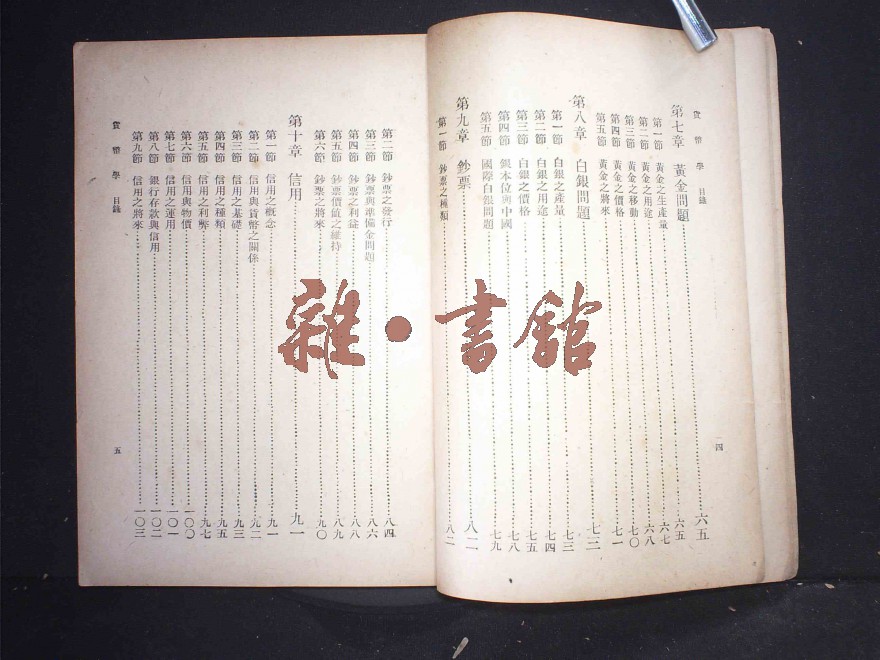 貨幣學 目錄
第七章 黃金問題 六五
第一節 黃金之生產量 六五
第二節 黃金之用途 六七
第三節 黃金之移動 六八
第四節 黃金之價格 七〇
第五節 黃金之將來 七一
第八章 白銀問題 七三
第一節 白銀之產量 七三
第二節 白銀之用途 七四
第三節 白銀之價格 七五
第四節 銀本位與中國 七八
第五節 國際白銀問題 七九
第九章 鈔票 八二
第一節 鈔票之種類 八二
四
第二節 鈔票之發行 八四
第三節 鈔票與準備金問題 八六
第四節 鈔票之利益 八八
第五節 鈔票價值之維持 八九
第六節 鈔票之將來 九〇
第十章 信用 九一
第一節 信用之概念 九一
第二節 信用與貨幣之關係 九二
第三節 信用之基礎 九三
第四節 信用之種類 九五
第五節 信用之利弊 九七
第六節 信用與物價 一〇〇
第七節 信用之運用 一〇一
第八節 銀行存款與信用 一〇二
第九節 信用之將來 一〇三
貨幣學 目錄
五
雜·書館